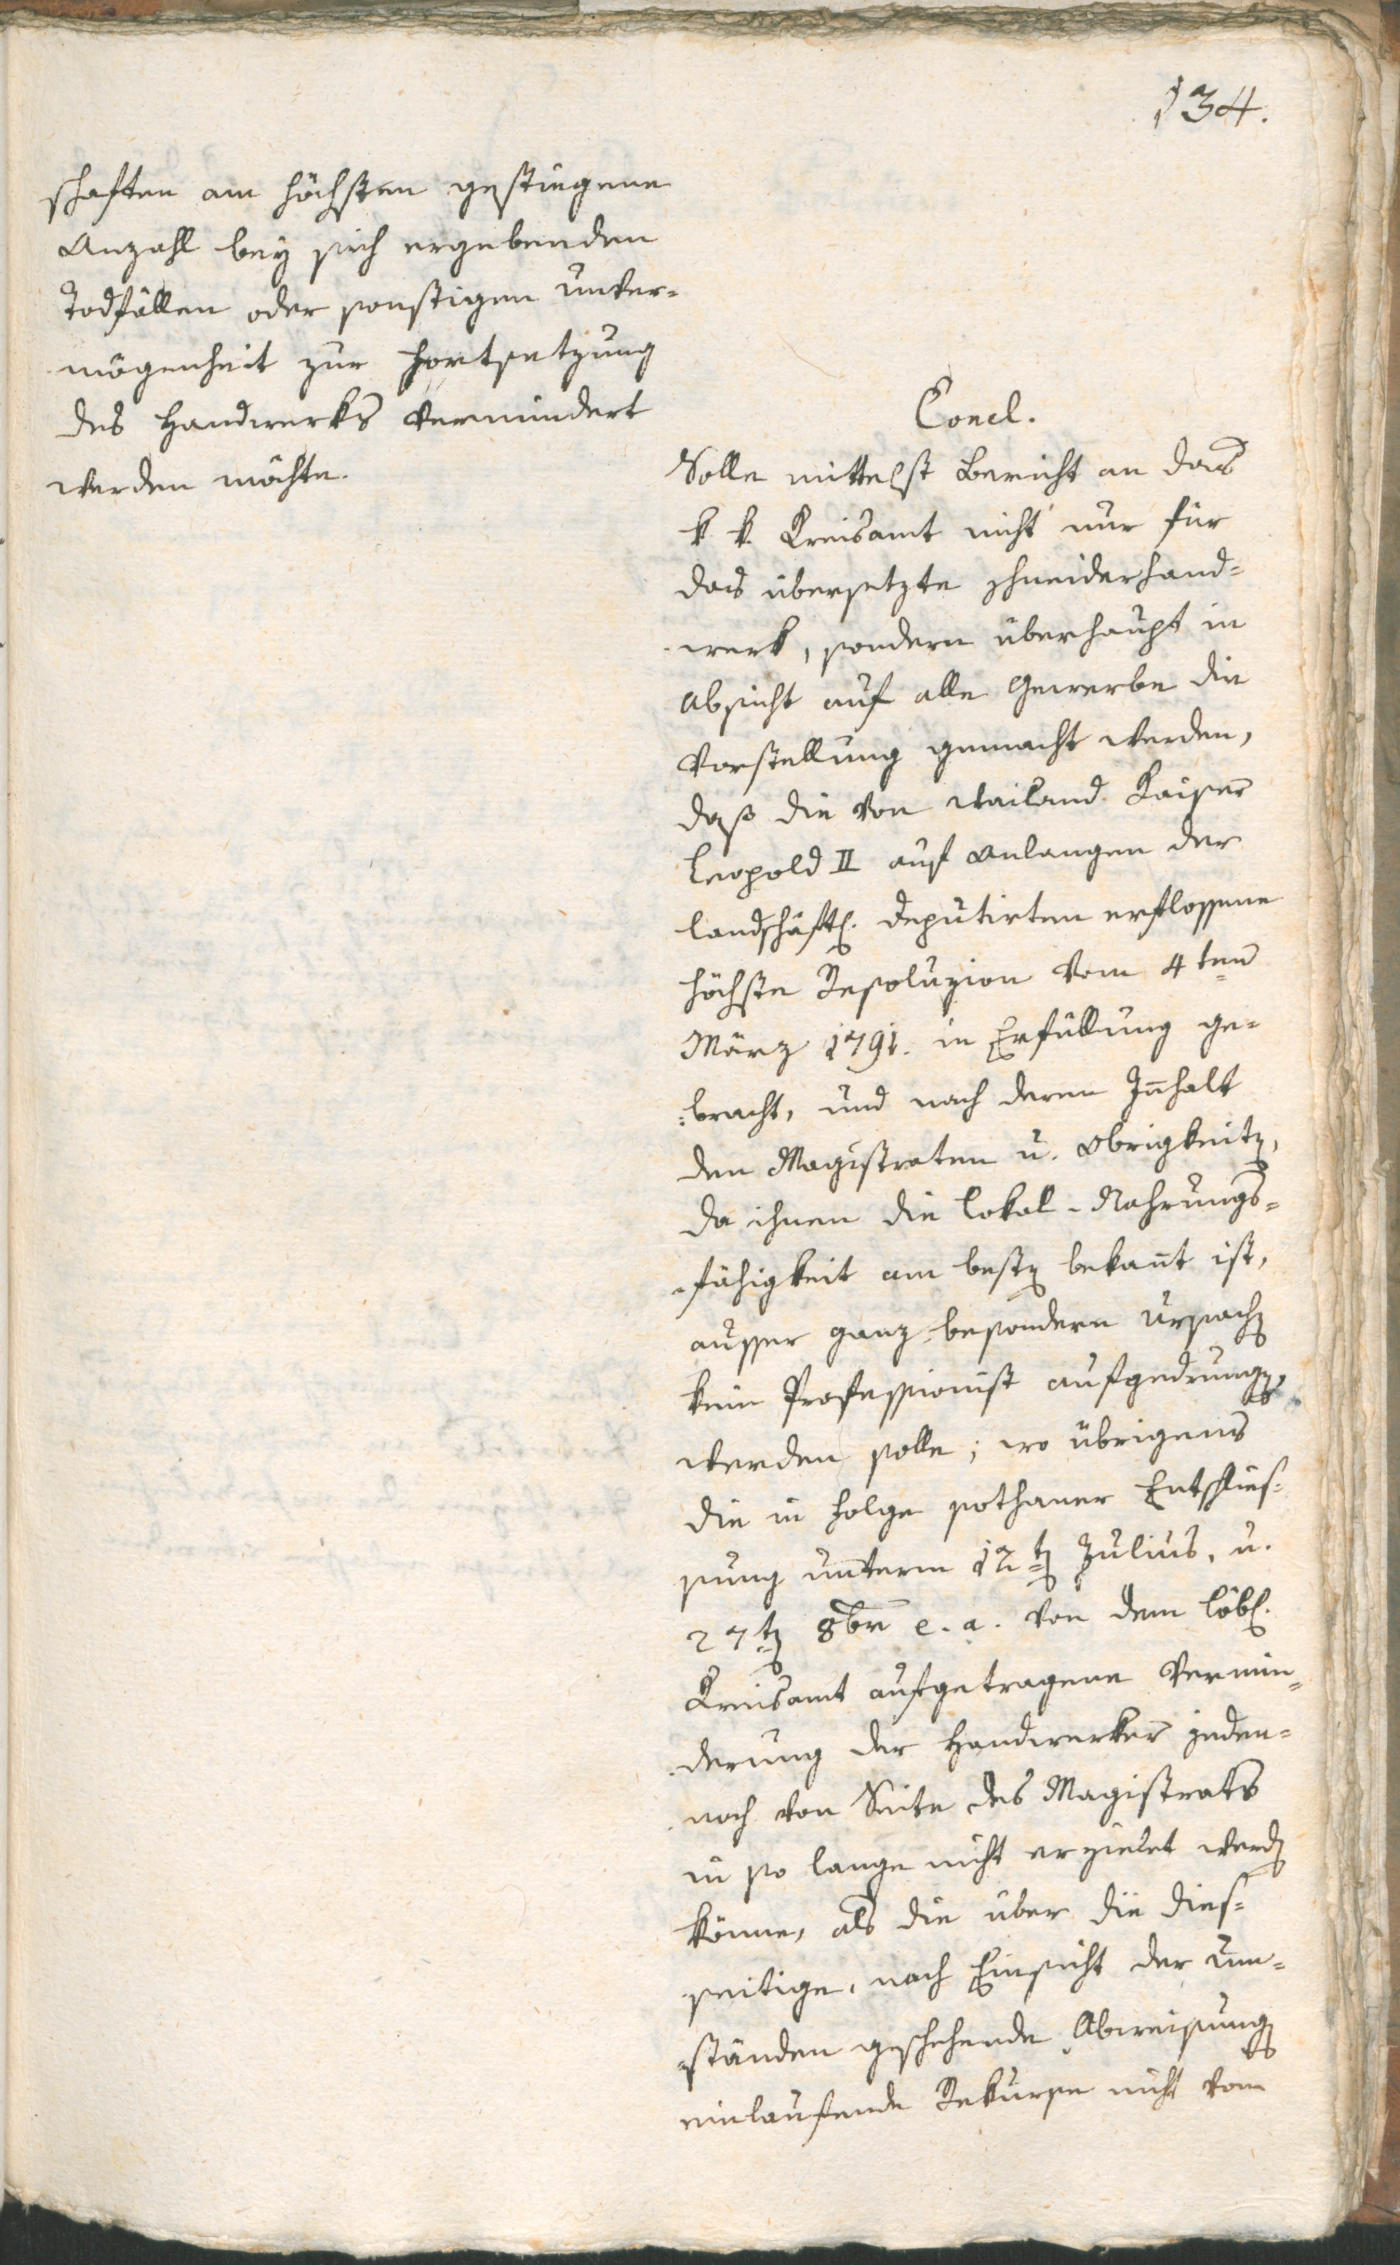 134.
schaften am höchsten gestiegene
Anzahl bey sich ergebenden
Todfällen oder sonstigen Unver-
mögenheit zur Fortsetzung
des Handwerks vermindert
werden möchte.
Concl.
Solle mittelst Bericht an das
k. k. Kreisamt nicht nur für
das übersetzte Schneiderhand-
werk, sondern überhaupt in
Absicht auf alle Gewerbe die
Vorstellung gemacht werden,
daß die von weiland Kaiser
Leopold II auf Anlangen der
landschäftl. Deputirten erflossene
höchste Resoluzion vom 4ten
März 1791. in Erfüllung ge-
bracht, und nach deren Innhalt
den Magistraten u. Obrigkeiten,
da ihnen die Lokal-Nahrungs-
fähigkeit am besten bekannt ist,
ausser ganz besondern Ursachen
kein Professionist aufgedrungen
werden solle; wo übrigens
die in Folge sothaner Entschlies-
sung unterm 12ten Julius, u.
27ten 8br e. a. von dem löbl.
Kreisamt aufgetragene Vermin-
derung der Handwerker jeden-
noch von Seite des Magistrats
in so lange nicht erzielet werden
könne, als die über die dies-
seitige, nach Einsicht der Um-
ständen geschehende Abweisungen
einlaufende Rekurse nicht vom